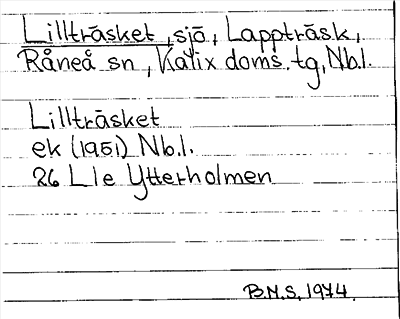 Lillträsket, sjö, Lappträsk,
Råneå sn, Kalix doms. tg, Nb.l.
Lillträsket
ek (1951) Nb.l.
26 L1e Ytterholmen
B.N.S, 1974.